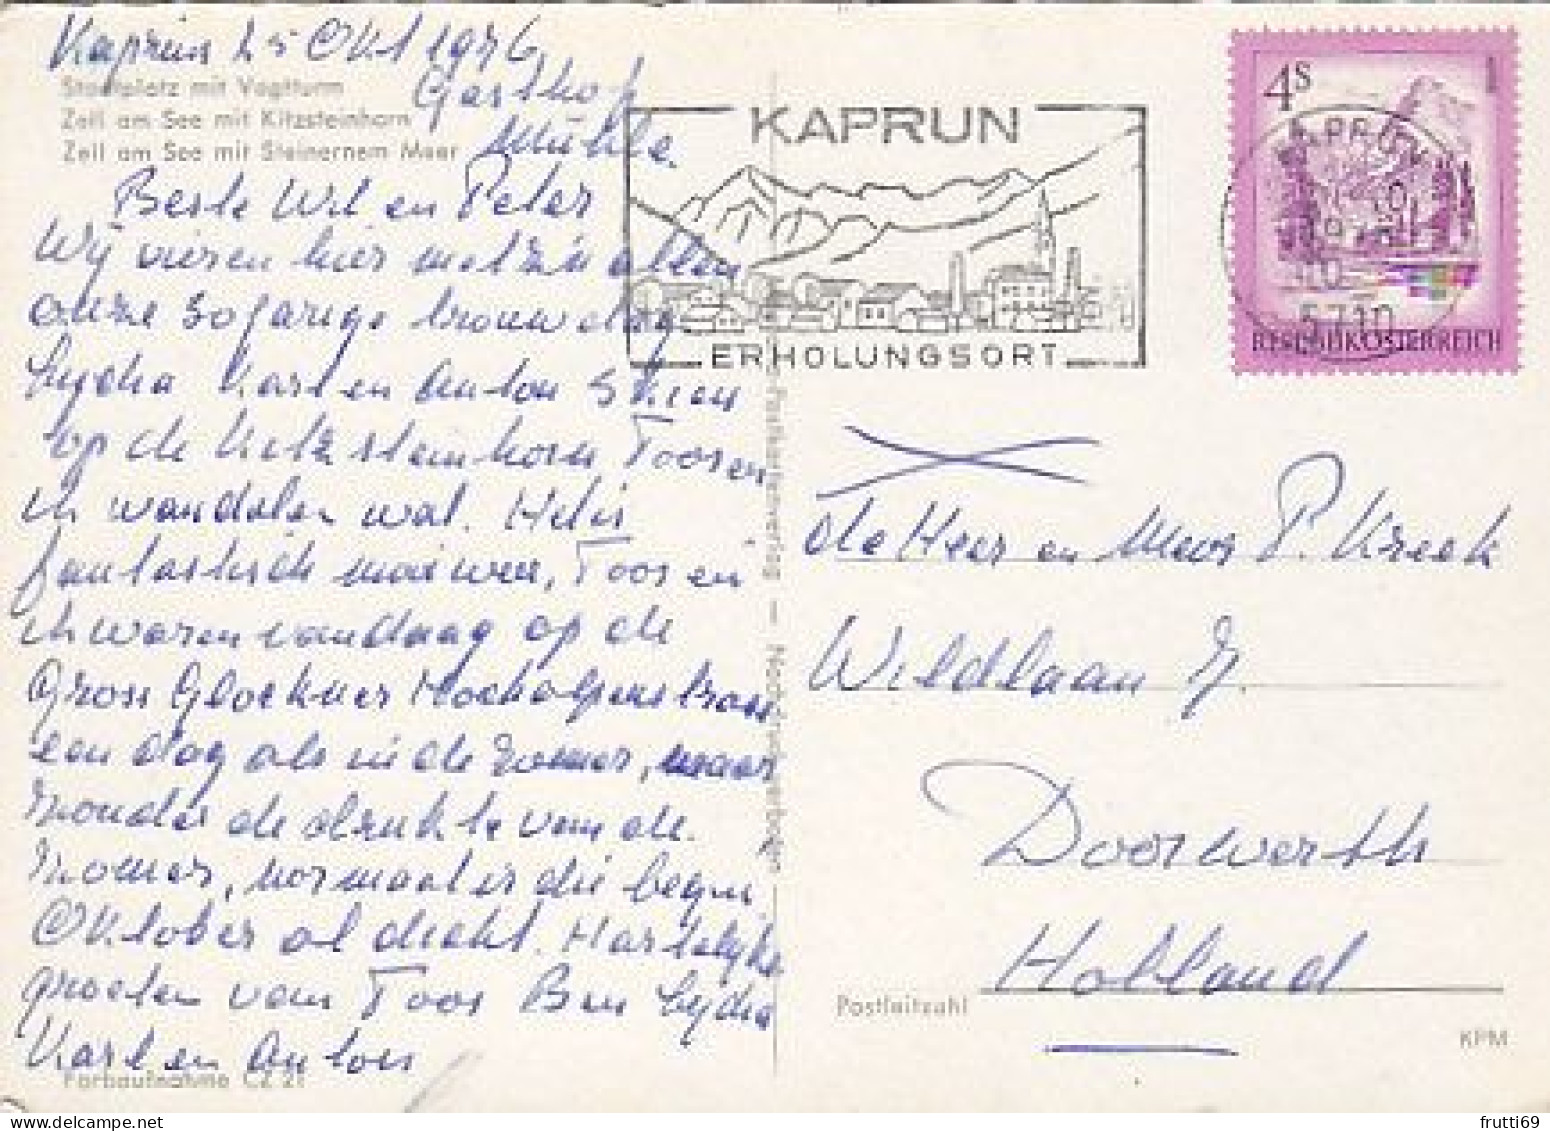 Kaprun 25 Okt 1976
Gasthof
Mühle.
Stadtplatz mit Vogtturm
Zell am See mit Kitzsteinhorn
Zell am See mit Steinernem Meer
Beste Wil en Peter
Wij vieren hier met z'n allen
onze 30 jarige trouwdag
Lydia Karl en Anton Skien
op de Kitzsteinhorn, Toos en
ik wandelen wat. Het is
fantastisch mooi weer, Toos en
ik waren vandaag op de
Gross Glockner Hochalpenstrass
een dag als in de zomer, maar
zonder de drukte van de
zomer, normaal is die begin
Oktober al dicht. Hartelijke
groeten van Toos Ben Lydia
Karl en Anton
Farbaufnahme CZ 21
Postkartenverlag — Nachdruck verboten
KAPRUN
ERHOLUNGSORT
4S
KAPRUN
5710
REPUBLIK ÖSTERREICH
de Heer en Mevr P. Kreek
Wildlaan 7.
Doorwerth
Holland
Postleitzahl
KPM
frutti69